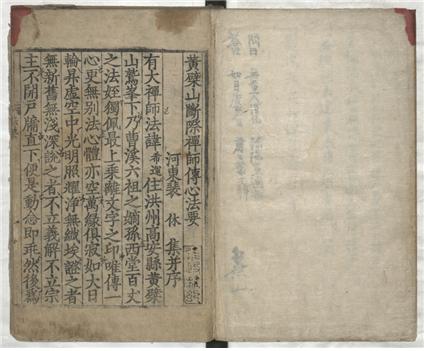 黃蘗山斷際禪師傳心法要
河東裴 休 集并序
有大禪師法諱希運住洪州高安縣黃蘗
山鷲峯下乃曹溪六祖之嫡孫西堂百丈
之法姪獨佩最上乘離文字之印唯傳一
心更無別法心體亦空萬緣俱寂如大日
輪昇虛空中光明照耀淨無纖埃證之者
無新舊無淺深說之者不立義解不立宗
主不開戶牖直下便是動念即乖然後爲